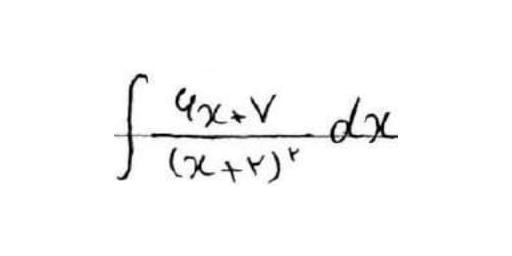 ∫ (۶x+۷)/(x+۲)^۲ dx